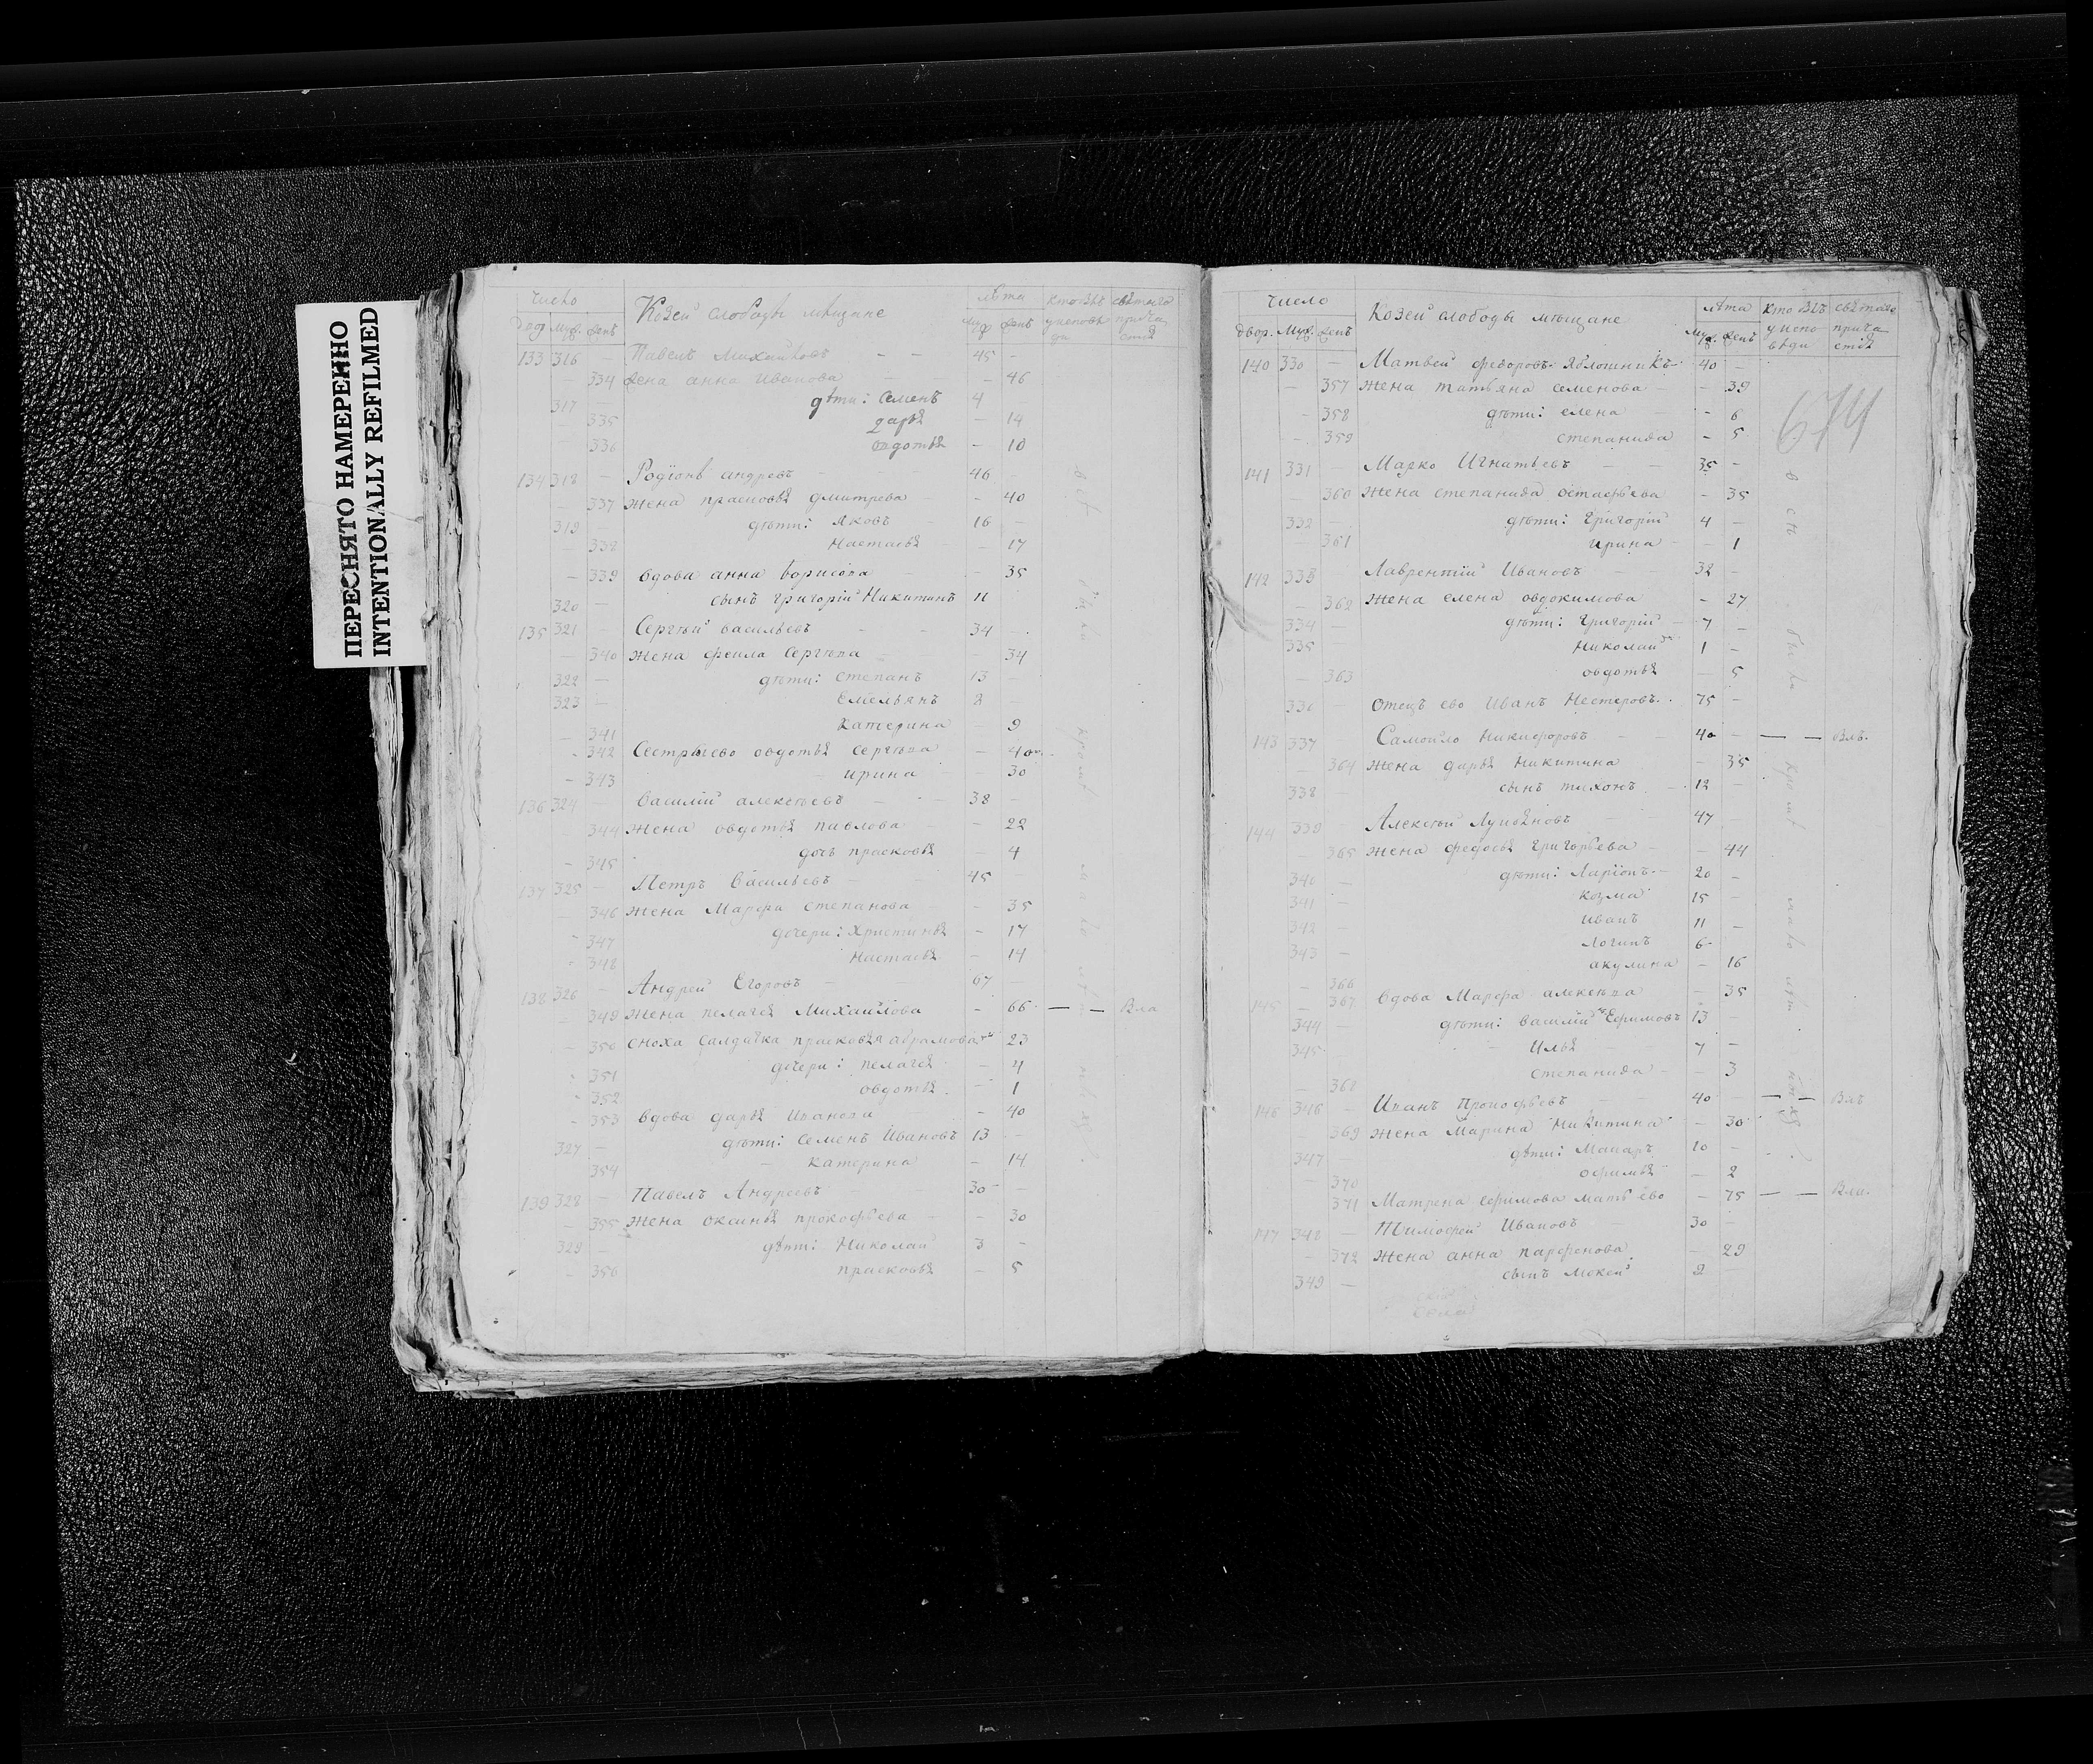 ПЕРЕСНЯТО НАМЕРЕННО
INTENTIONALLY REFILMED
число Козей слободы мѣщане лѣта кто былъ у исповѣди святаго причастія
двор. муж. женъ муж. женъ
133 316 — Павелъ Михайловъ — — 45 —
— 334 жена анна Иванова — 46
317 дѣти: Семенъ 4 —
335 дарья — 14
336 овдотья — 10
134 318 — Родіонъ андреевъ — 46 —
— 337 жена прасковья дмитрева — — 40
319 — дѣти: яковъ 16 —
— 338 Настасья — 17
— 339 вдова анна борисова — 35
320 — сынъ григорій Никитинъ 11
135 321 — Сергѣй васильевъ — 34 —
— 340 жена феила Сергѣева — 34
322 — дѣти: степанъ 13 —
323 — Емельянъ 2 —
— 341 Катерина — 9
— 342 Сестры ево овдотья сергѣева — 40
— 343 ирина — 30
136 324 Василій алексѣевъ — — 38 —
344 жена овдотья павлова — — 22
— 345 дочь прасковья — 4
137 325 — Петръ Васильевъ — 45 —
— 346 жена Марфа степанова — 35
— 347 дочери: Христинья — 17
— 348 Настасья — 14
138 326 — Андрей Егоровъ — 67 —
— 349 жена пелагея Михайлова — 66 — —
— 350 сноха салдатка прасковья абрамова 23
— 351 дочери: пелагея — 4
— 352 овдотья — 1
— 353 вдова дарья Иванова — 40
327 — дѣти: Семенъ Ивановъ 13 —
354 — катерина — 14
139 328 — Павелъ Андреевъ 30 —
— 355 жена оксинья прокофьева — — 30
329 — дѣти: Николай 3 —
— 356 прасковья — 5
всѣ были кромѣ
число Козей слободы мѣщане лѣта кто былъ у исповѣди святаго причастія
двор. муж. женъ муж. женъ
674
140 330 — Матвей федоровъ яблошникъ 40 —
— 357 жена татьяна семенова — — 39
— 358 дѣти: елена — 6
— 359 степанида — 5
141 331 — Марко Игнатьевъ — — 35 —
— 360 жена степанида остафьева — 35
332 — дѣти: григорій 4 —
— 361 ирина — — 1
142 333 — Лаврентій Ивановъ — 32 —
— 362 жена елена овдокимова — 27
334 — дѣти: григорій — 7 —
335 Николай 1 —
— 363 овдотья — 5
336 — отецъ ево Иванъ Нестеровъ 75 —
143 337 Самойло Никифоровъ — — 40 — — —
— 364 жена дарья Никитина — 35
338 — сынъ тихонъ — 12 —
144 339 — Алексѣй Лукьяновъ 47 —
— 365 жена федосья григорьева — — 44
340 — дѣти: Ларіонъ — 20 —
341 — козма 15 —
342 — иванъ 11 —
343 — логинъ 6 —
— 366 акулина — 16
145 — 367 вдова Марфа алексѣева — 35
344 — дѣти: василій Ефимовъ 13 —
345 — Илья 7 —
— 368 степанида — — 3
146 346 — Иванъ Прокофьевъ — 40 — — —
— 369 жена Марина Никитина — 30
347 — дѣти: Макаръ 10 —
— 370 офимья — 2
371 Матрена ефимова мать ево — 75 — —
147 348 — Тимофей Ивановъ — 30 —
— 372 жена анна парфенова — 29
349 — сынъ Мокей 2
всѣ были кромѣ